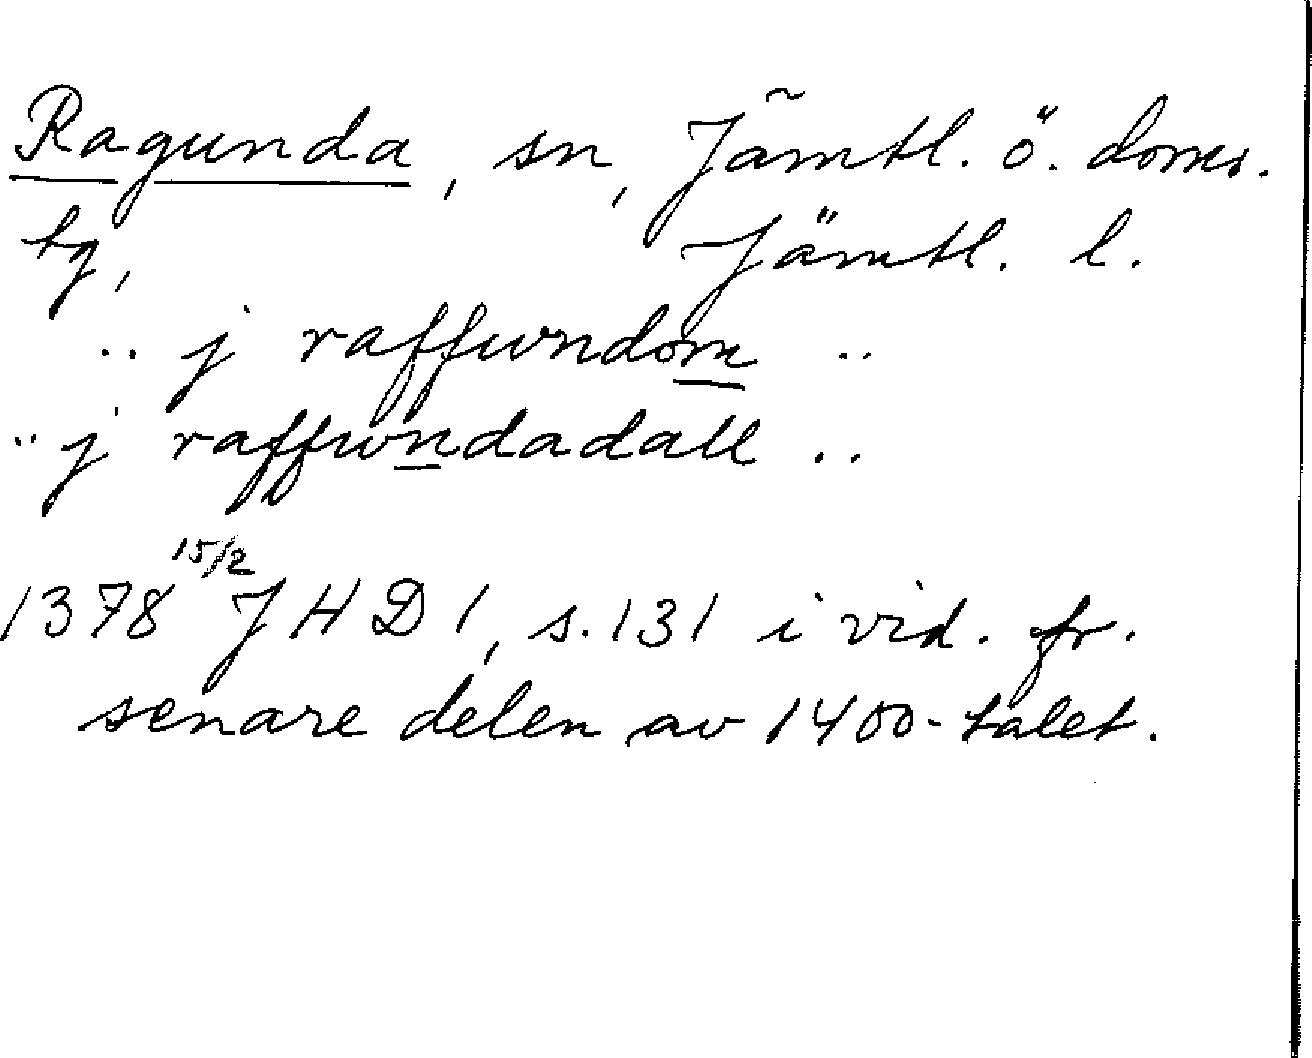 Ragunda, sn, Jämtl. ö. doms.
tg, Jämtl. l.
.. j raffwndom ..
.. j raffwndadall ..
1378 15/2 JHD 1, s. 131 i vid. fr.
senare delen av 1400-talet.